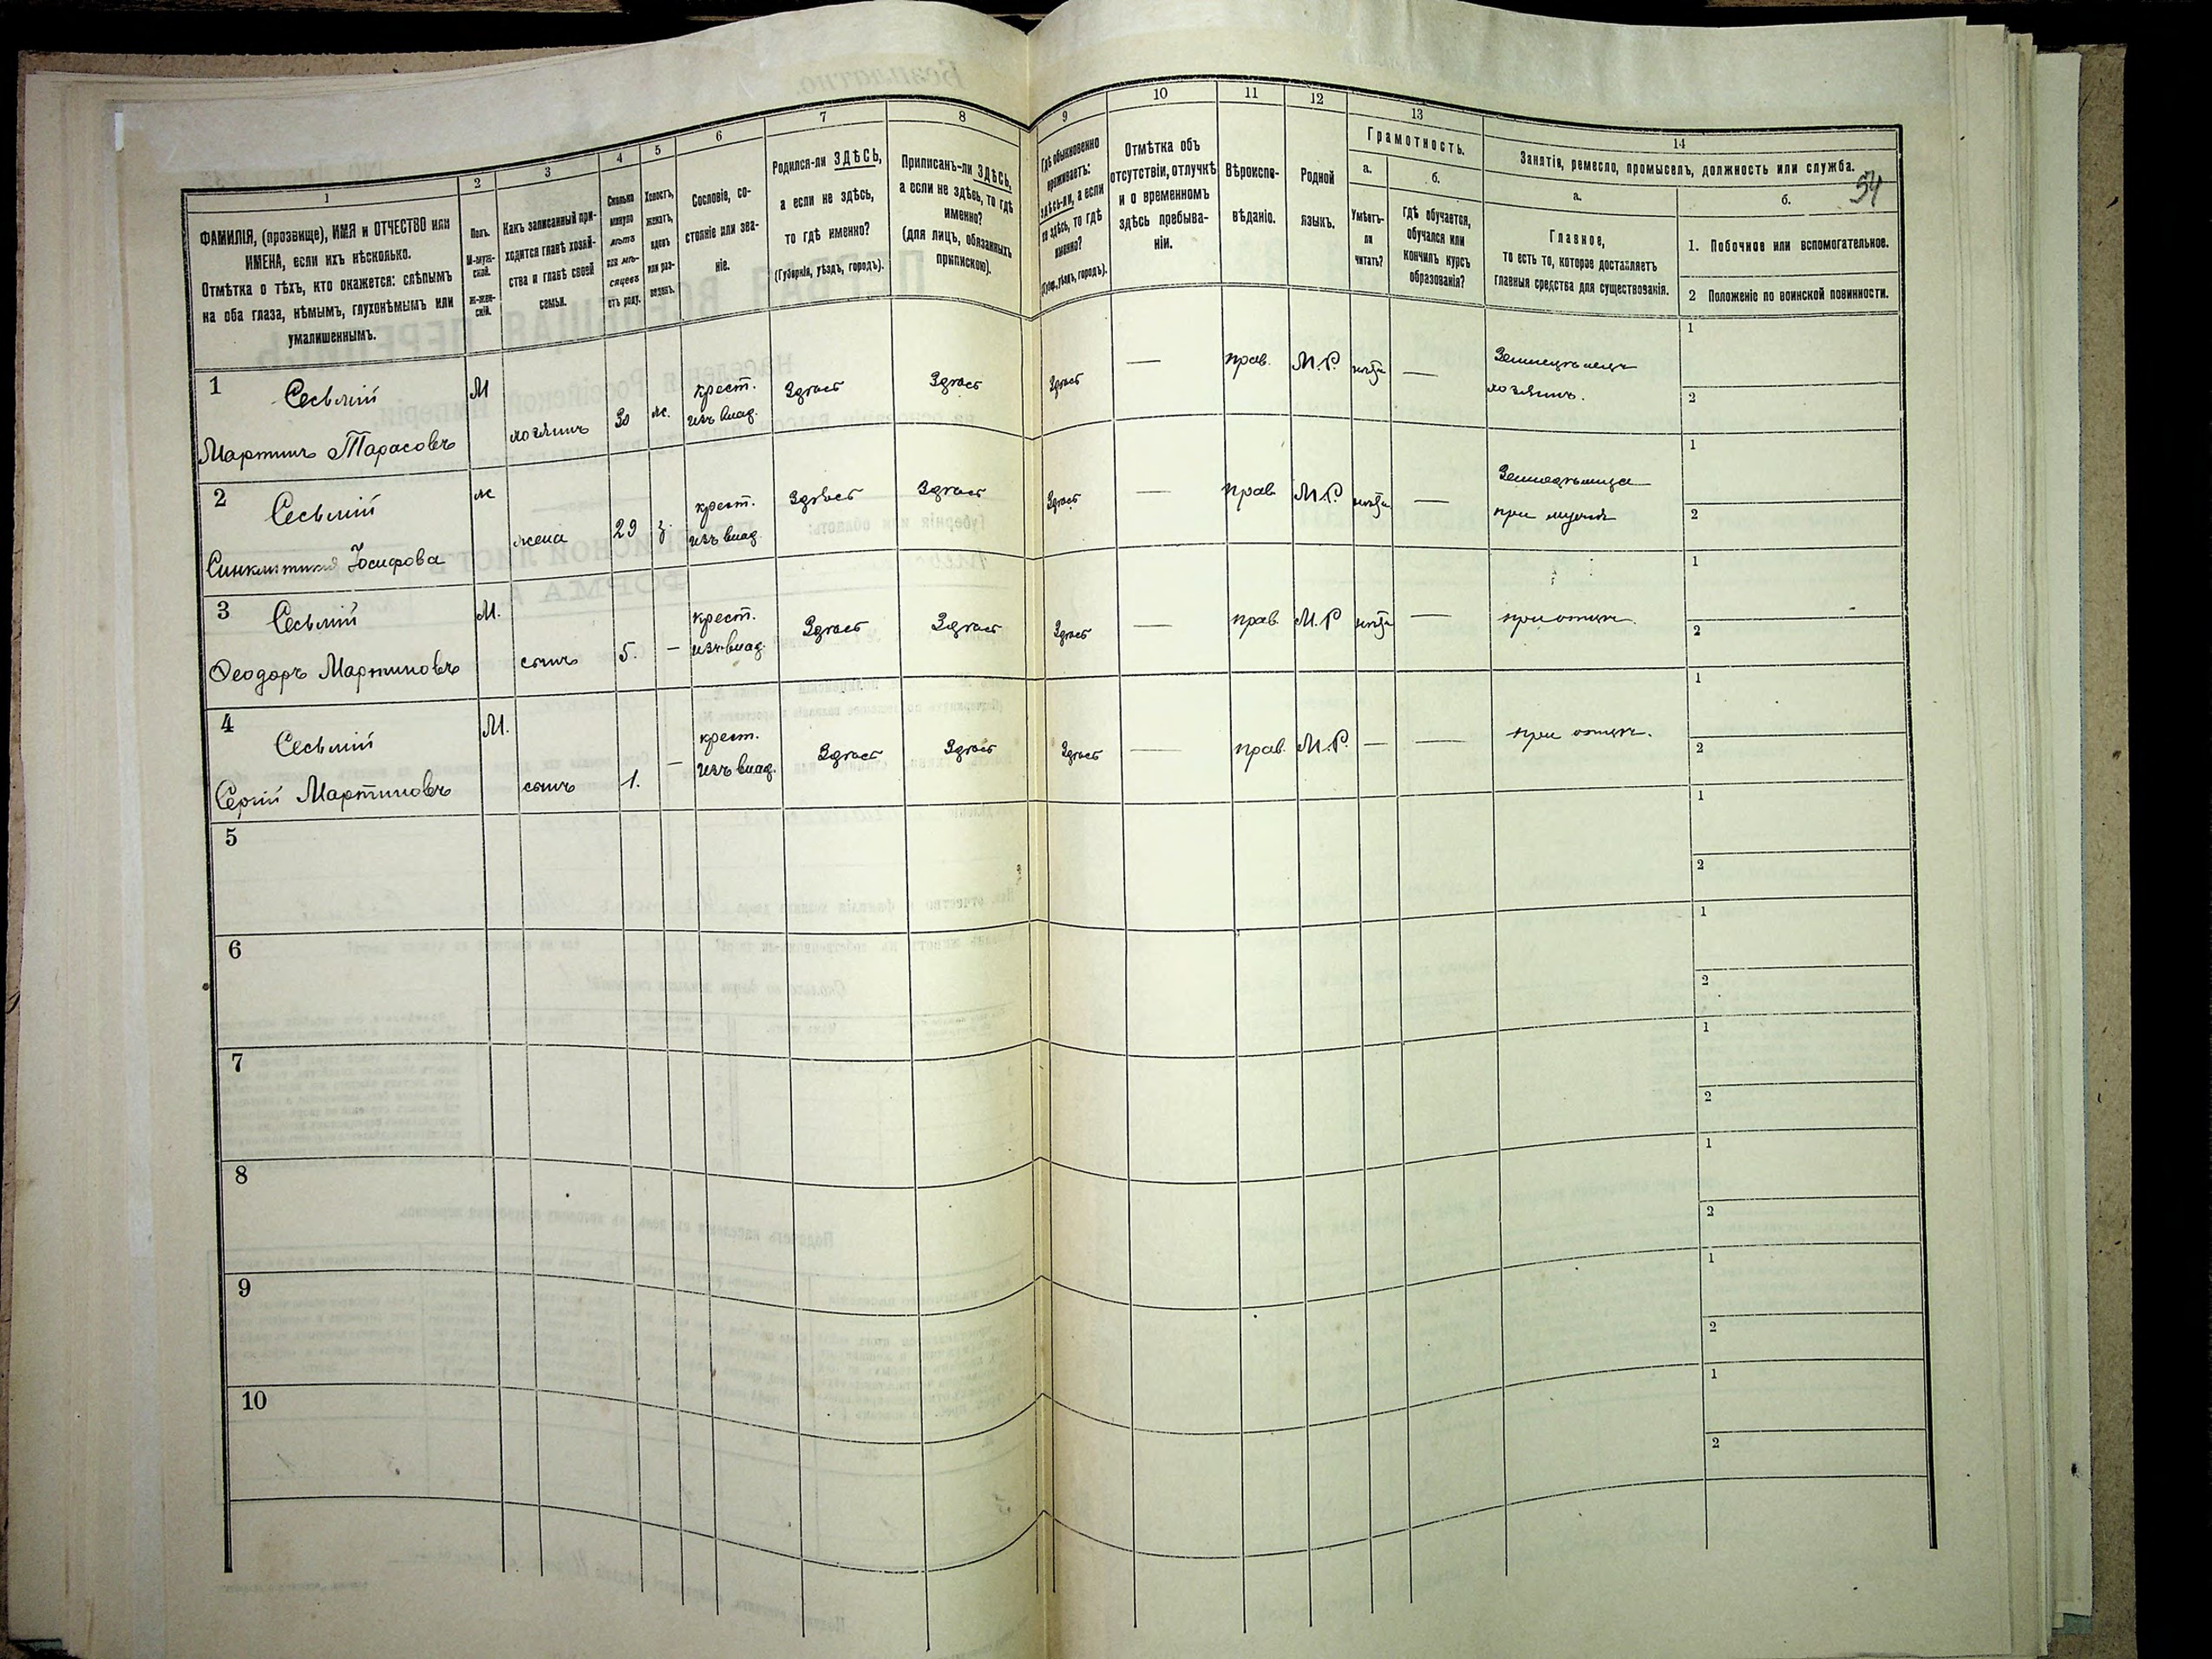 54
1
2
3
4
5
6
7
8
9
10
11
12
13
14
ФАМИЛІЯ, (прозвище), ИМЯ и ОТЧЕСТВО или
ИМЕНА, если ихъ нѣсколько.
Отмѣтка о тѣхъ, кто окажется: слѣпымъ
на оба глаза, нѣмымъ, глухонѣмымъ или
умалишеннымъ.
Полъ.
М-муж-
ской.
Ж-жен-
скій.
Какъ записанный при-
ходится главѣ хозяй-
ства и главѣ своей
семьи.
Сколько
минуло
лѣтъ
или мѣ-
сяцевъ
отъ роду.
Холостъ,
женатъ,
вдовъ
или раз-
веденъ.
Сословіе, со-
стояніе или зва-
ніе.
Родился-ли ЗДѢСЬ,
а если не здѣсь,
то гдѣ именно?
(Губернія, уѣздъ, городъ).
Приписанъ-ли ЗДѢСЬ,
а если не здѣсь, то гдѣ
именно?
(для лицъ, обязанныхъ
припискою).
Гдѣ обыкновенно
проживаетъ:
здѣсь-ли, а если
не здѣсь, то гдѣ
именно?
(Губ., уѣздъ, городъ).
Отмѣтка объ
отсутствіи, отлучкѣ
и о временномъ
здѣсь пребыва-
ніи.
Вѣроиспо-
вѣданіе.
Родной
языкъ.
Грамотность.
а.
Умѣетъ-
ли
читать?
б.
гдѣ обучается,
обучался или
кончилъ курсъ
образованія?
Занятія, ремесло, промыселъ, должность или служба.
а.
Главное,
то есть то, которое доставляетъ
главныя средства для существованія.
б.
1. Побочное или вспомогательное.
2 Положеніе по воинской повинности.
1
М
крест. Здѣсь Здѣсь Здѣсь — прав. М.Р. нѣтъ —
Мартинъ Тарасовъ хозяинъ 30 ж. изъ влад. хозяинъ.
1
2
2
ж
крест. Здѣсь Здѣсь Здѣсь — прав М.Р. нѣтъ —
Іосифова жена 29 з. изъ влад при мужѣ
1
2
3
М.
крест. Здѣсь Здѣсь Здѣсь — прав. М.Р нѣтъ — при отцѣ.
Феодоръ Мартиновъ сынъ 5. — изъ влад.
1
2
4
М.
крест. Здѣсь Здѣсь Здѣсь — прав. М.Р. — — при отцѣ.
Сергій Мартиновъ сынъ 1. — изъ влад.
1
2
5
1
2
6
1
2
7
1
2
8
1
2
9
1
2
10
1
2